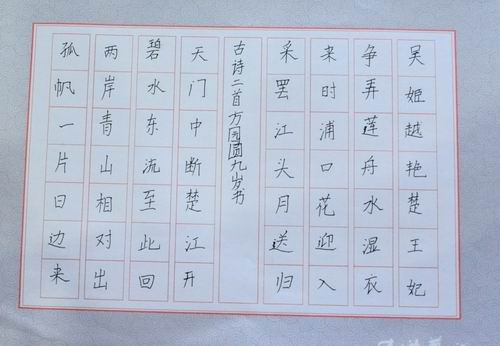 吴姬越艳楚王妃
争弄莲舟水湿衣
来时浦口花迎入
采罢江头月送归
古诗二首方园圆九岁书
天门中断楚江开
碧水东流至此回
两岸青山相对出
孤帆一片日边来